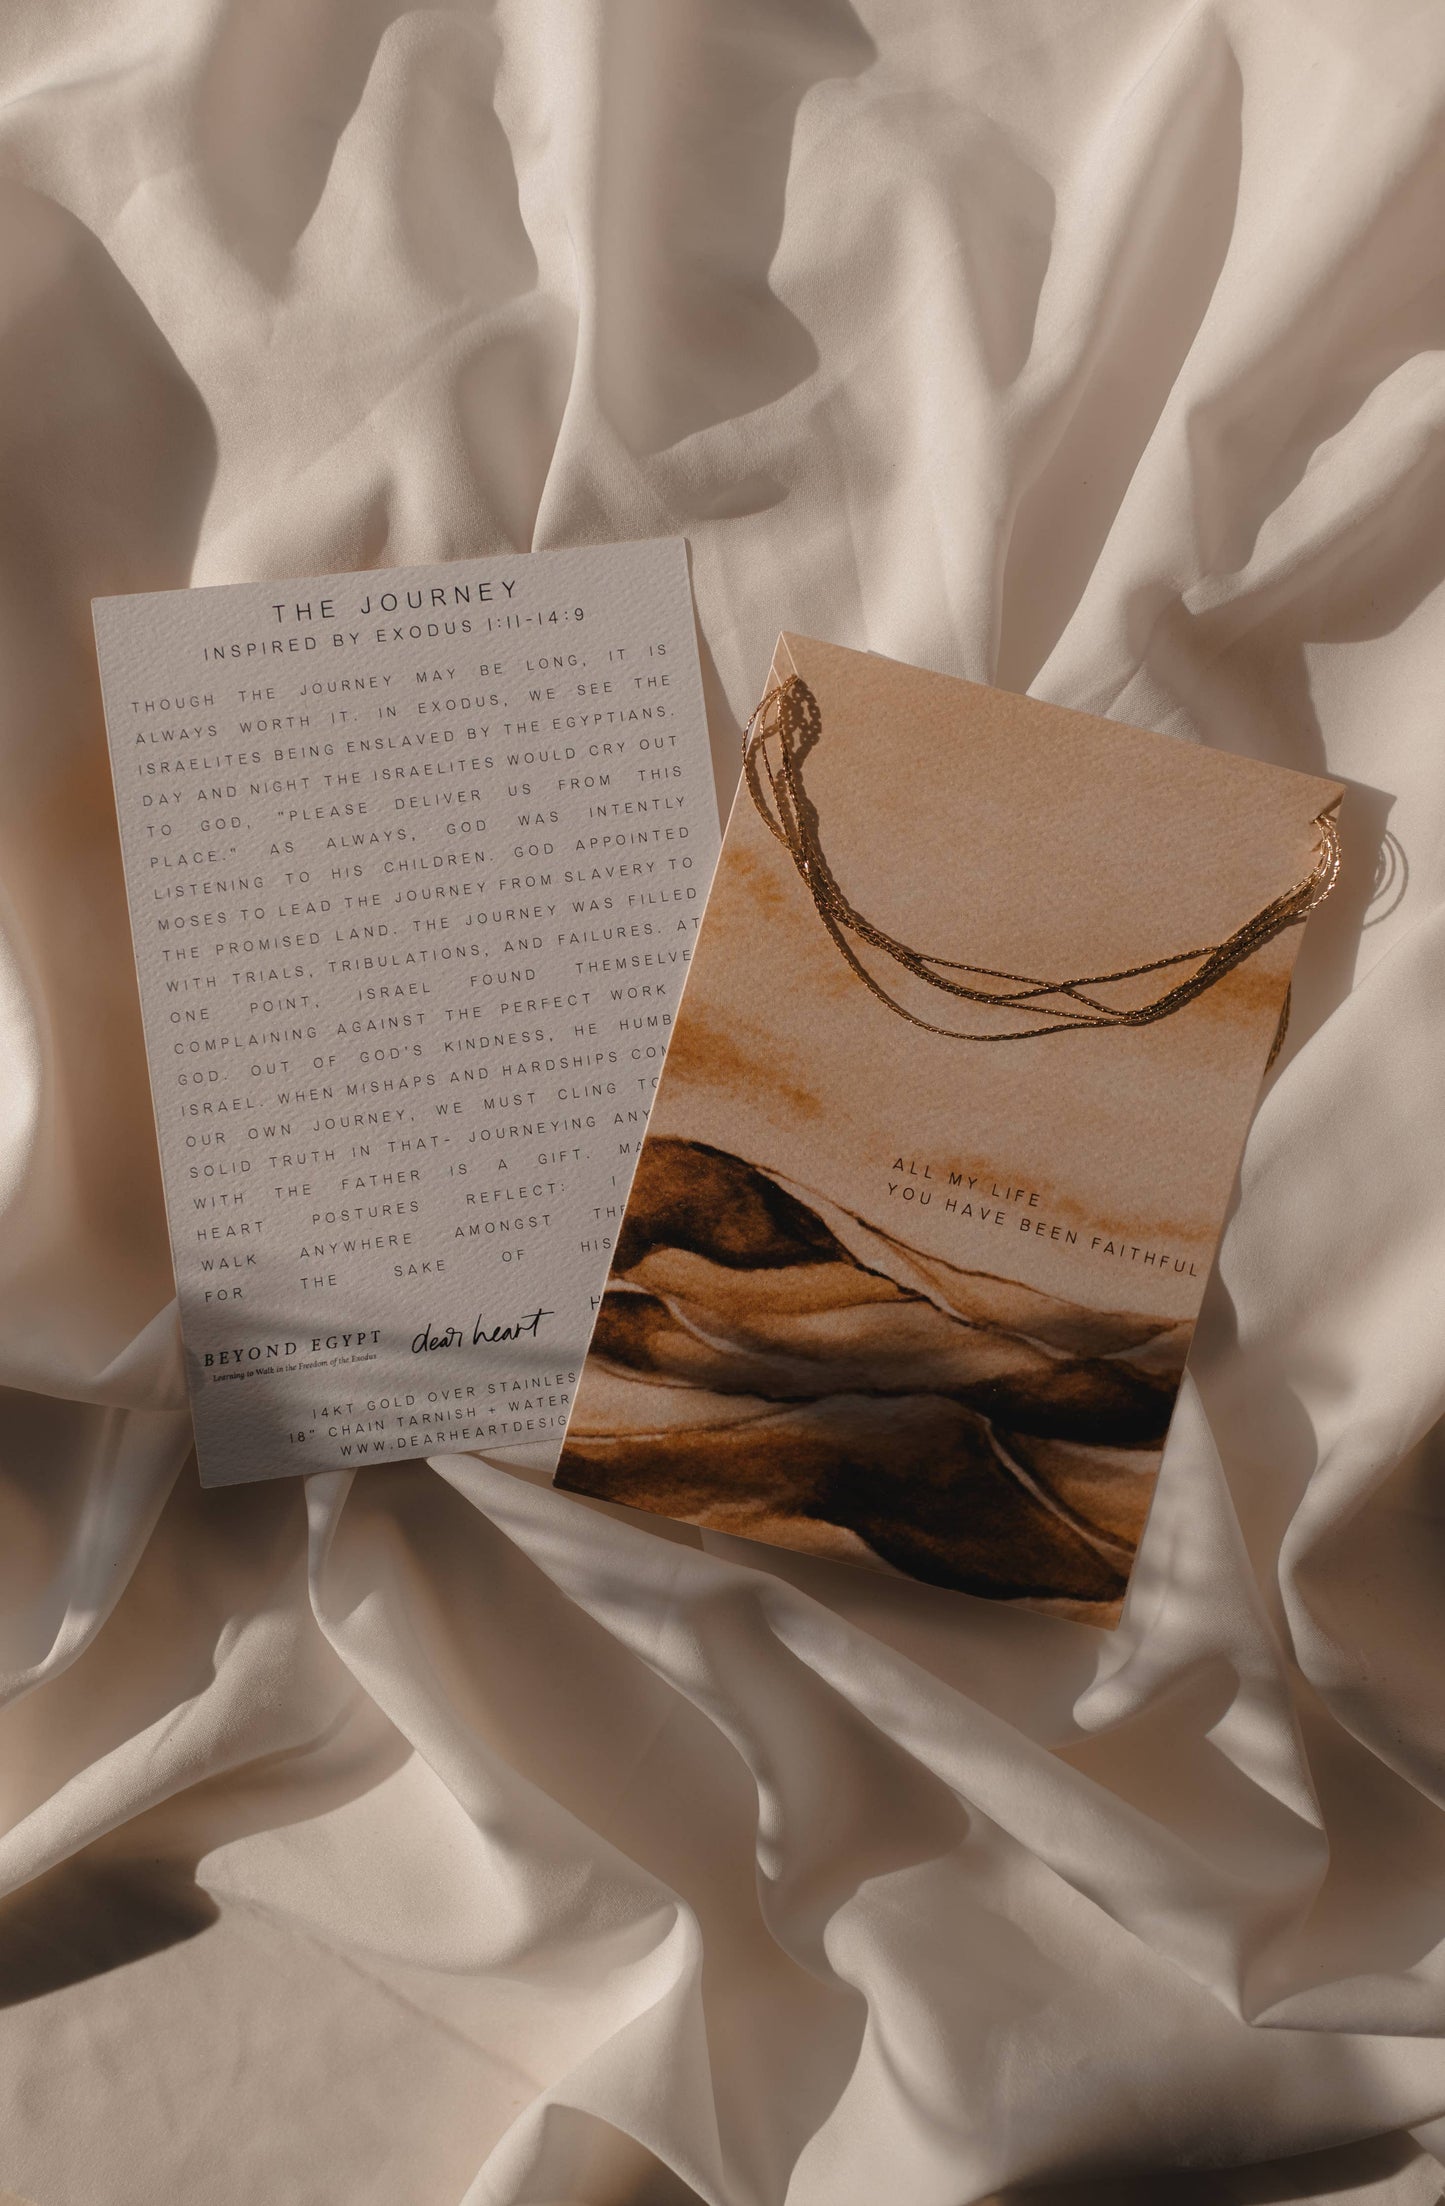 THE JOURNEY
INSPIRED BY EXODUS 1:11-14:9
THOUGH THE JOURNEY MAY BE LONG, IT IS
ALWAYS WORTH IT. IN EXODUS, WE SEE THE
ISRAELITES BEING ENSLAVED BY THE EGYPTIANS.
DAY AND NIGHT THE ISRAELITES WOULD CRY OUT
TO GOD, "PLEASE DELIVER US FROM THIS
PLACE." AS ALWAYS, GOD WAS INTENTLY
LISTENING TO HIS CHILDREN. GOD APPOINTED
MOSES TO LEAD THE JOURNEY FROM SLAVERY TO
THE PROMISED LAND. THE JOURNEY WAS FILLED
WITH TRIALS, TRIBULATIONS, AND FAILURES. AT
ONE POINT, ISRAEL FOUND THEMSELVE
COMPLAINING AGAINST THE PERFECT WORK
GOD. OUT OF GOD'S KINDNESS, HE HUMB
ISRAEL. WHEN MISHAPS AND HARDSHIPS COM
OUR OWN JOURNEY, WE MUST CLING TO
SOLID TRUTH IN THAT- JOURNEYING ANY
WITH THE FATHER IS A GIFT. MA
HEART POSTURES REFLECT: I
WALK ANYWHERE AMONGST THE
FOR THE SAKE OF HIS
H
BEYOND EGYPT
Learning to Walk in the Freedom of the Exodus
dear heart
14KT GOLD OVER STAINLES
18" CHAIN TARNISH + WATER
WWW.DEARHEARTDESIG
ALL MY LIFE
YOU HAVE BEEN FAITHFUL